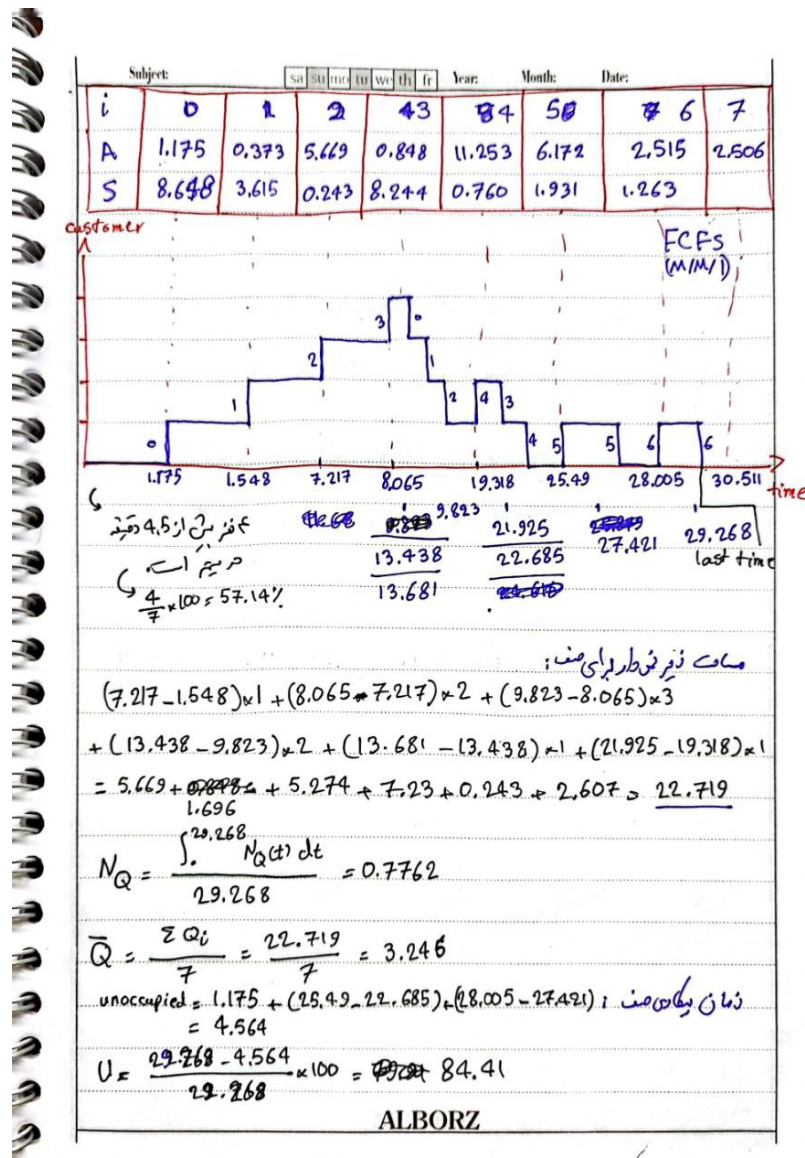 Subject: sa su mo tu we th fr Year: Month: Date:
i 0 1 2 3 4 5 6 7
A 1.175 0.373 5.669 0.848 11.253 6.172 2.515 2.506
S 8.648 3.615 0.243 8.244 0.760 1.931 1.263
customer
FCFS
(M/M/1)
3 0
2 1
1 2 4 3
0 4 5 5 6 6
1.175 1.548 7.217 8.065 19.318 25.49 28.005 30.511 time
9.823 21.925 27.421 29.268
4 نفر بیش از 4.5 دقیقه
13.438 22.685 last time
در سیستم است.
13.681
4/7 × 100 = 57.14%
مساحت زیر نمودار برای صف:
(7.217 - 1.548) × 1 + (8.065 - 7.217) × 2 + (9.823 - 8.065) × 3
+ (13.438 - 9.823) × 2 + (13.681 - 13.438) × 1 + (21.925 - 19.318) × 1
= 5.669 + 1.696 + 5.274 + 7.23 + 0.243 + 2.607 = 22.719
N_Q = ∫₀^29.268 N_Q(t) dt / 29.268 = 0.7762
Q̄ = Σ Qi / 7 = 22.719 / 7 = 3.246
unoccupied = 1.175 + (25.49 - 22.685) + (28.005 - 27.421) : زمان بیکاری صف
= 4.564
U = 29.268 - 4.564 / 29.268 × 100 = 84.41
ALBORZ